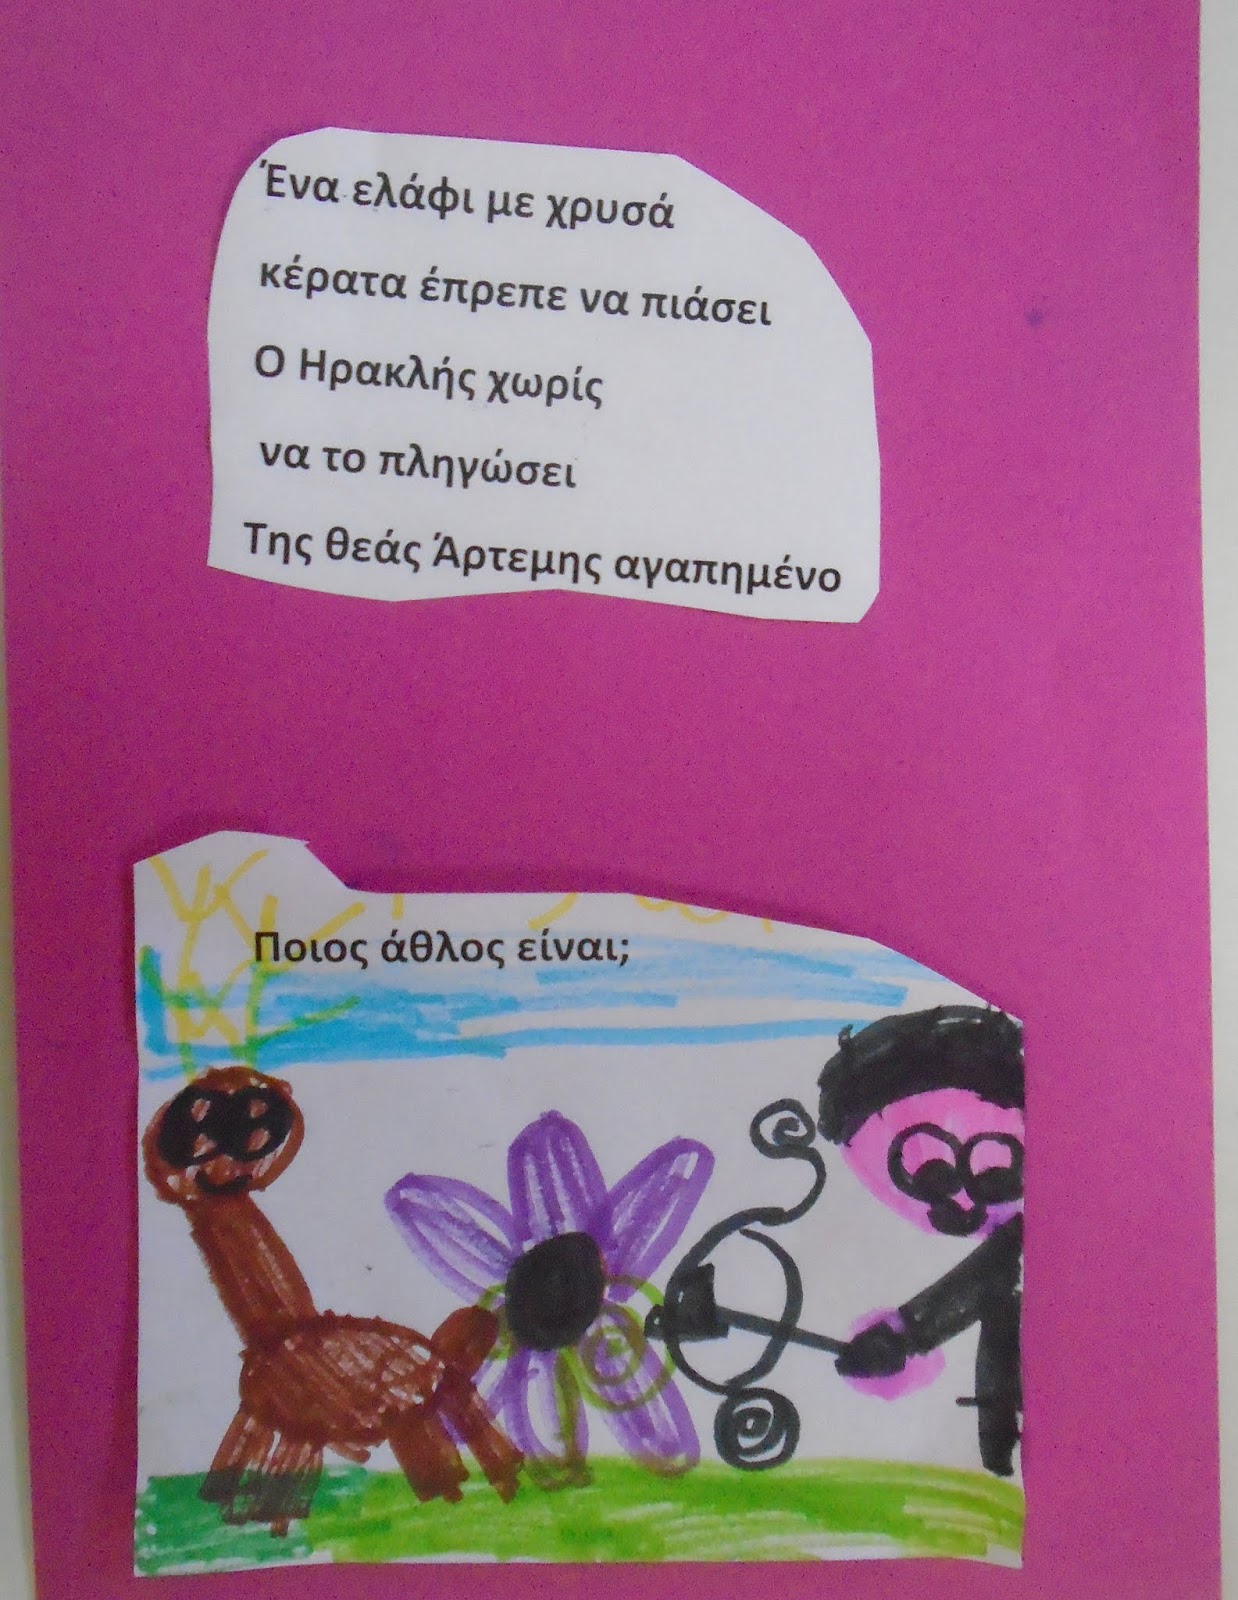 Ένα ελάφι με χρυσά
κέρατα έπρεπε να πιάσει
Ο Ηρακλής χωρίς
να το πληγώσει
Της θεάς Άρτεμης αγαπημένο
Ποιος άθλος είναι;